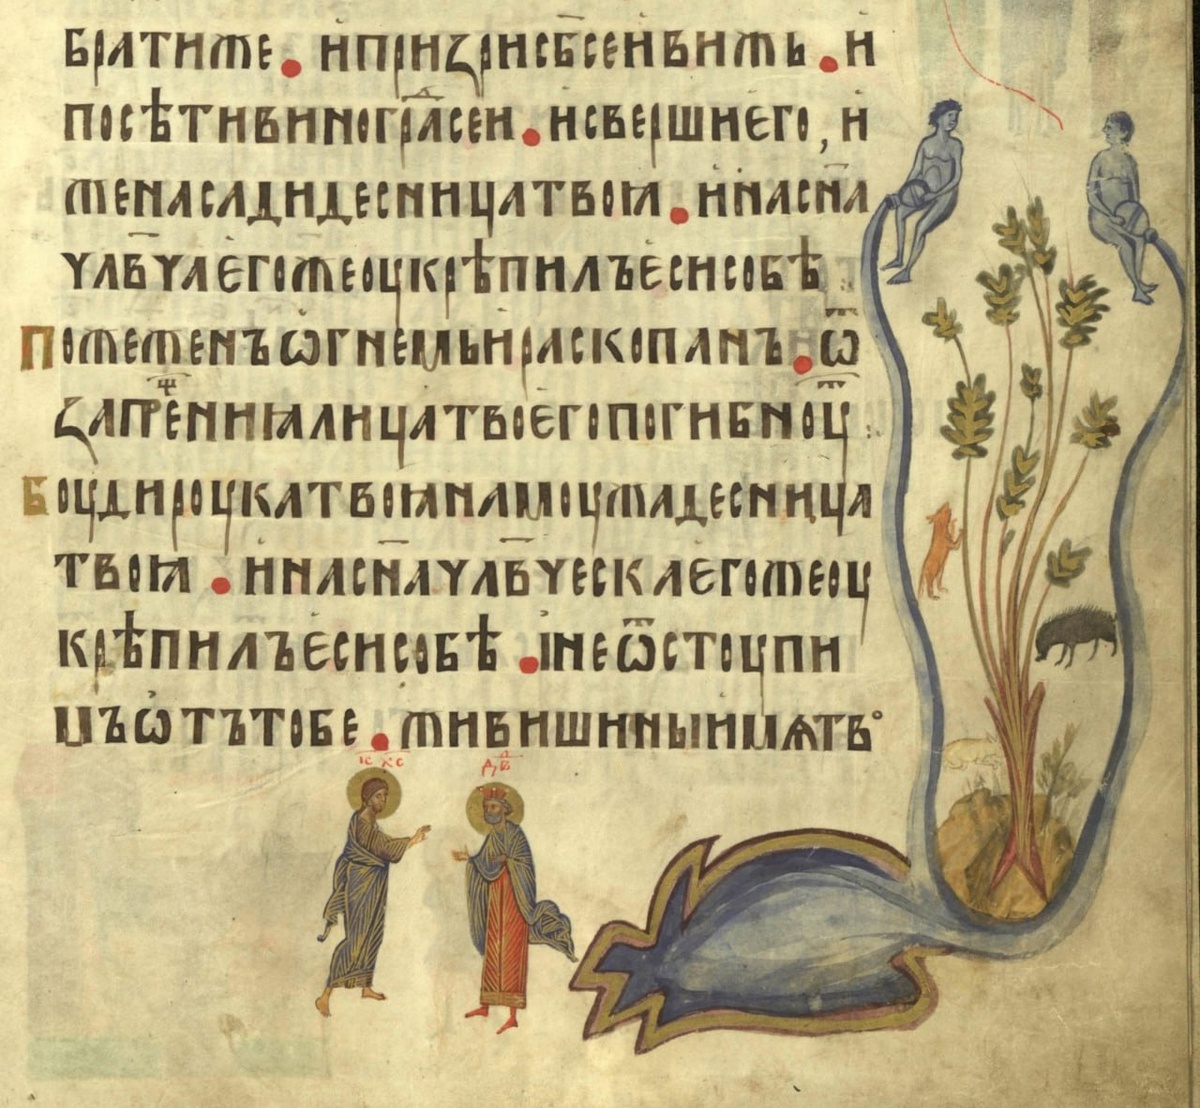 братиже . ипризрисб҃сеивижь . и
посѣтивиногра҃сеи . исвершиего , и
женасадидесницатвоꙗ . инасн҃а
ѵлв҃ѵлегожеоукрѣпилъесисобѣ
Пожеженъѡгнемьираскопанъ . ѿ
запрѣ҃нииꙗлицатвоегопогибноу :
Боудироукатвоꙗнамоужадесница
твоꙗ . инасн҃аѵлв҃ѵескаегожеоу
крѣпилъесисобѣ . ꙇнеѿстоупи
мъѡтътобе . живишиныиимѧтв
ІС ХС
дв҃